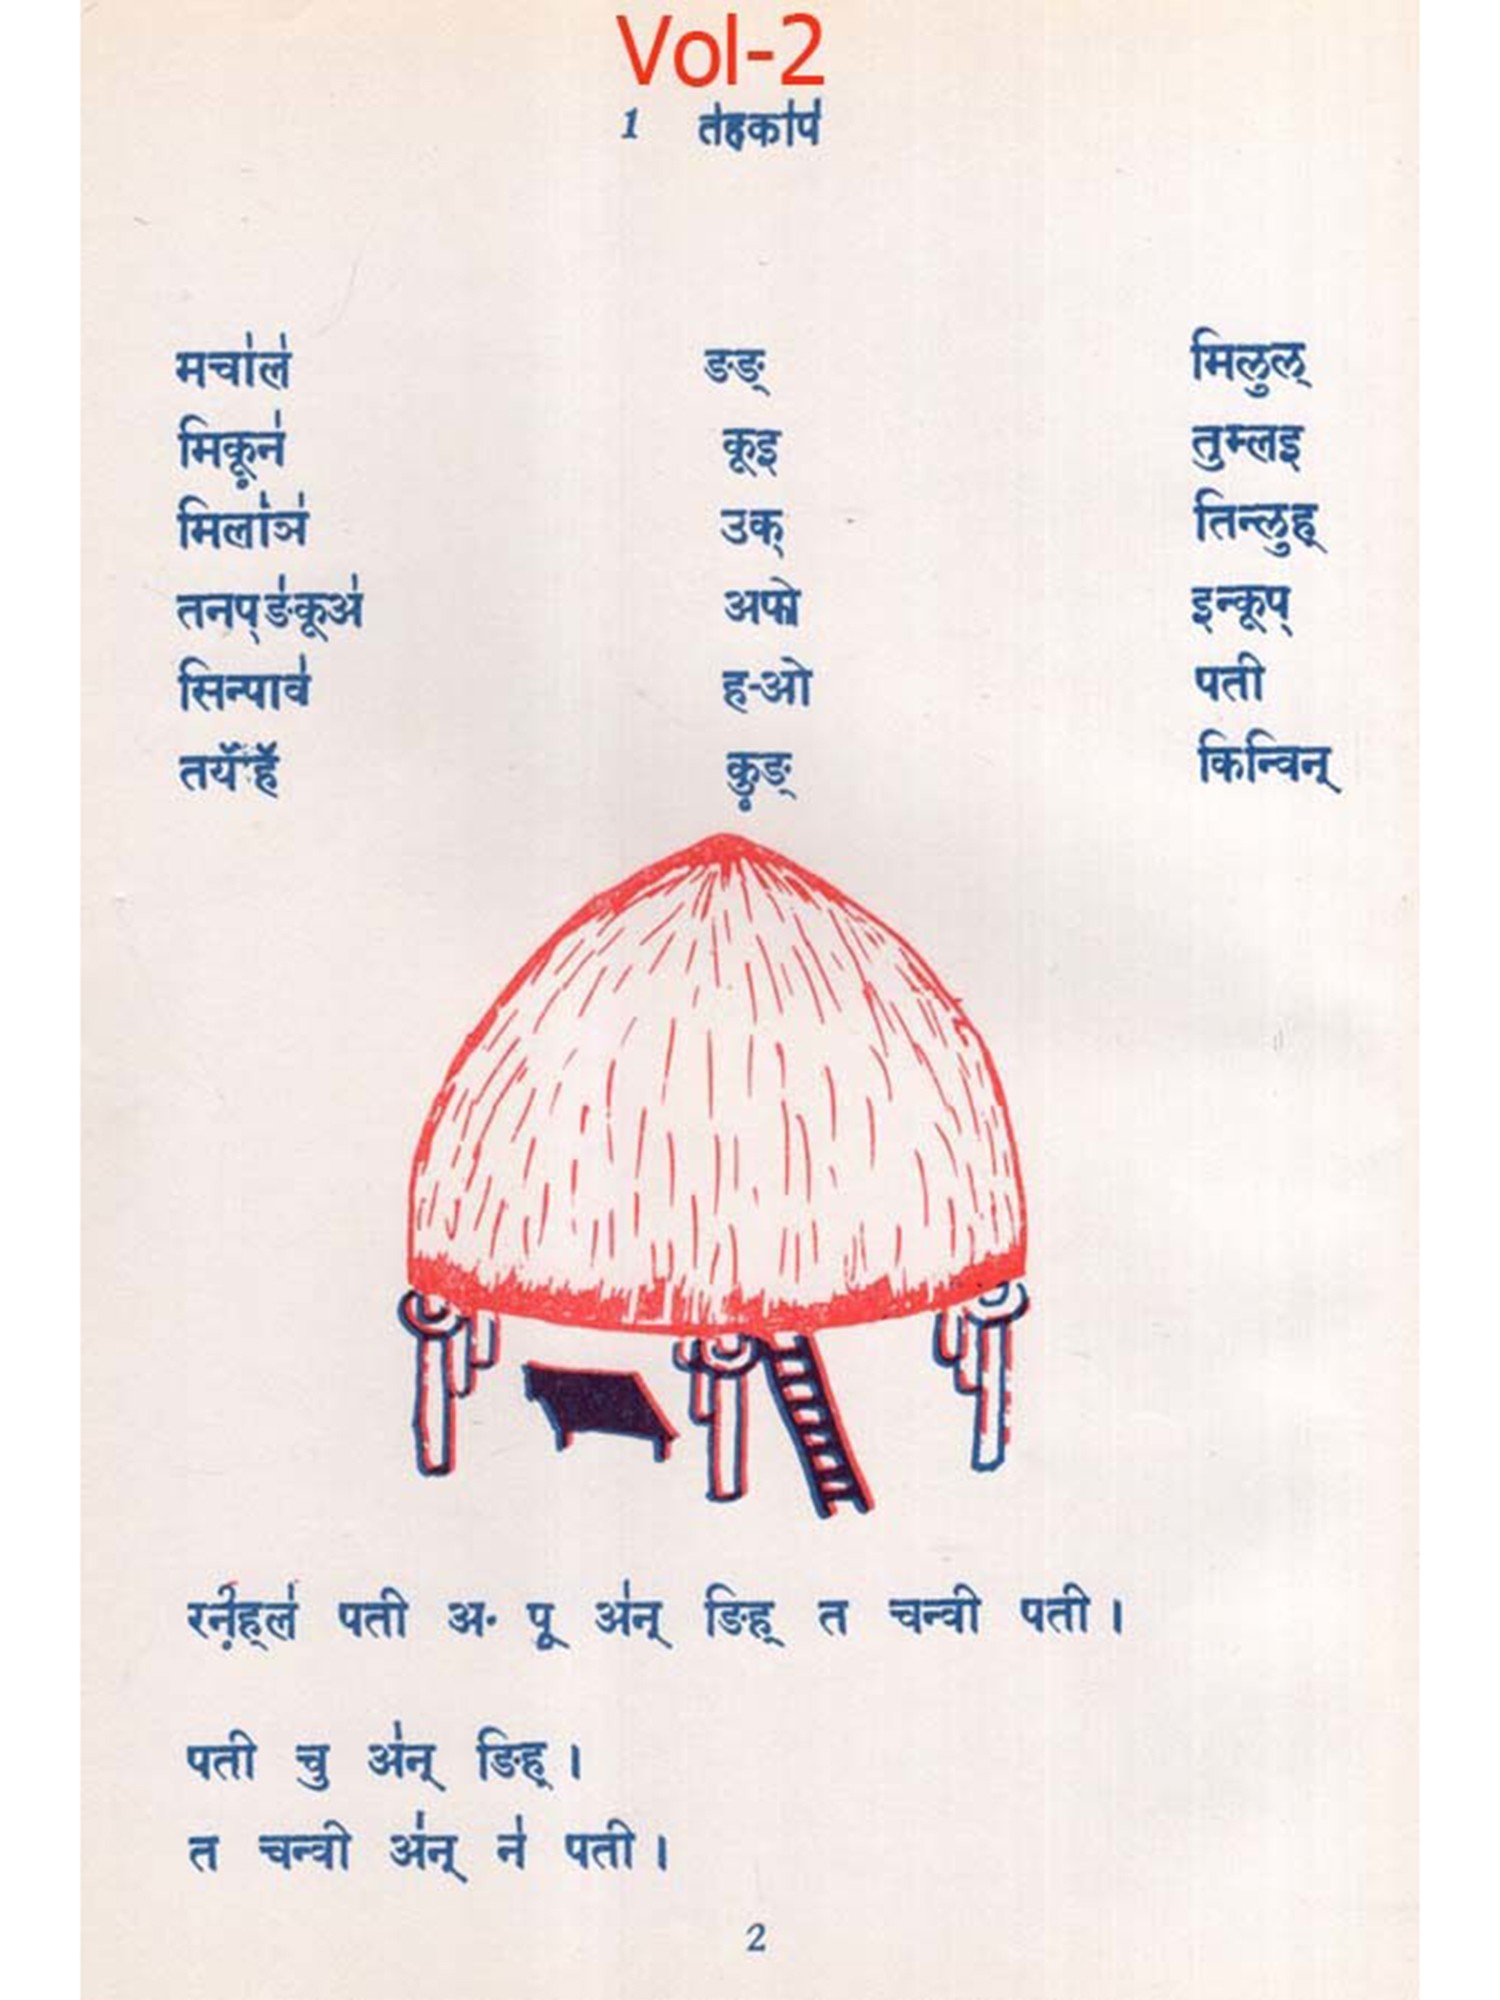 Vol-2
1 त॑हका॑प॑
मचा॑ल॑ ङङ् मिलुल्
मिकू़न॑ कूइ तुम्लइ
मिला॑ञ॑ उक् तिन्लुह्
तनप्ङ॑कूअ॑ अफो इन्कूप्
सिन्पाव॑ ह-ओ पती
कु़ङ् किन्विन्
पती अ· पू अ॑न् ङिह् त चन्वी पती।
पती चु अ॑न् ङिह्।
त चन्वी अ॑न् न॑ पती।
2